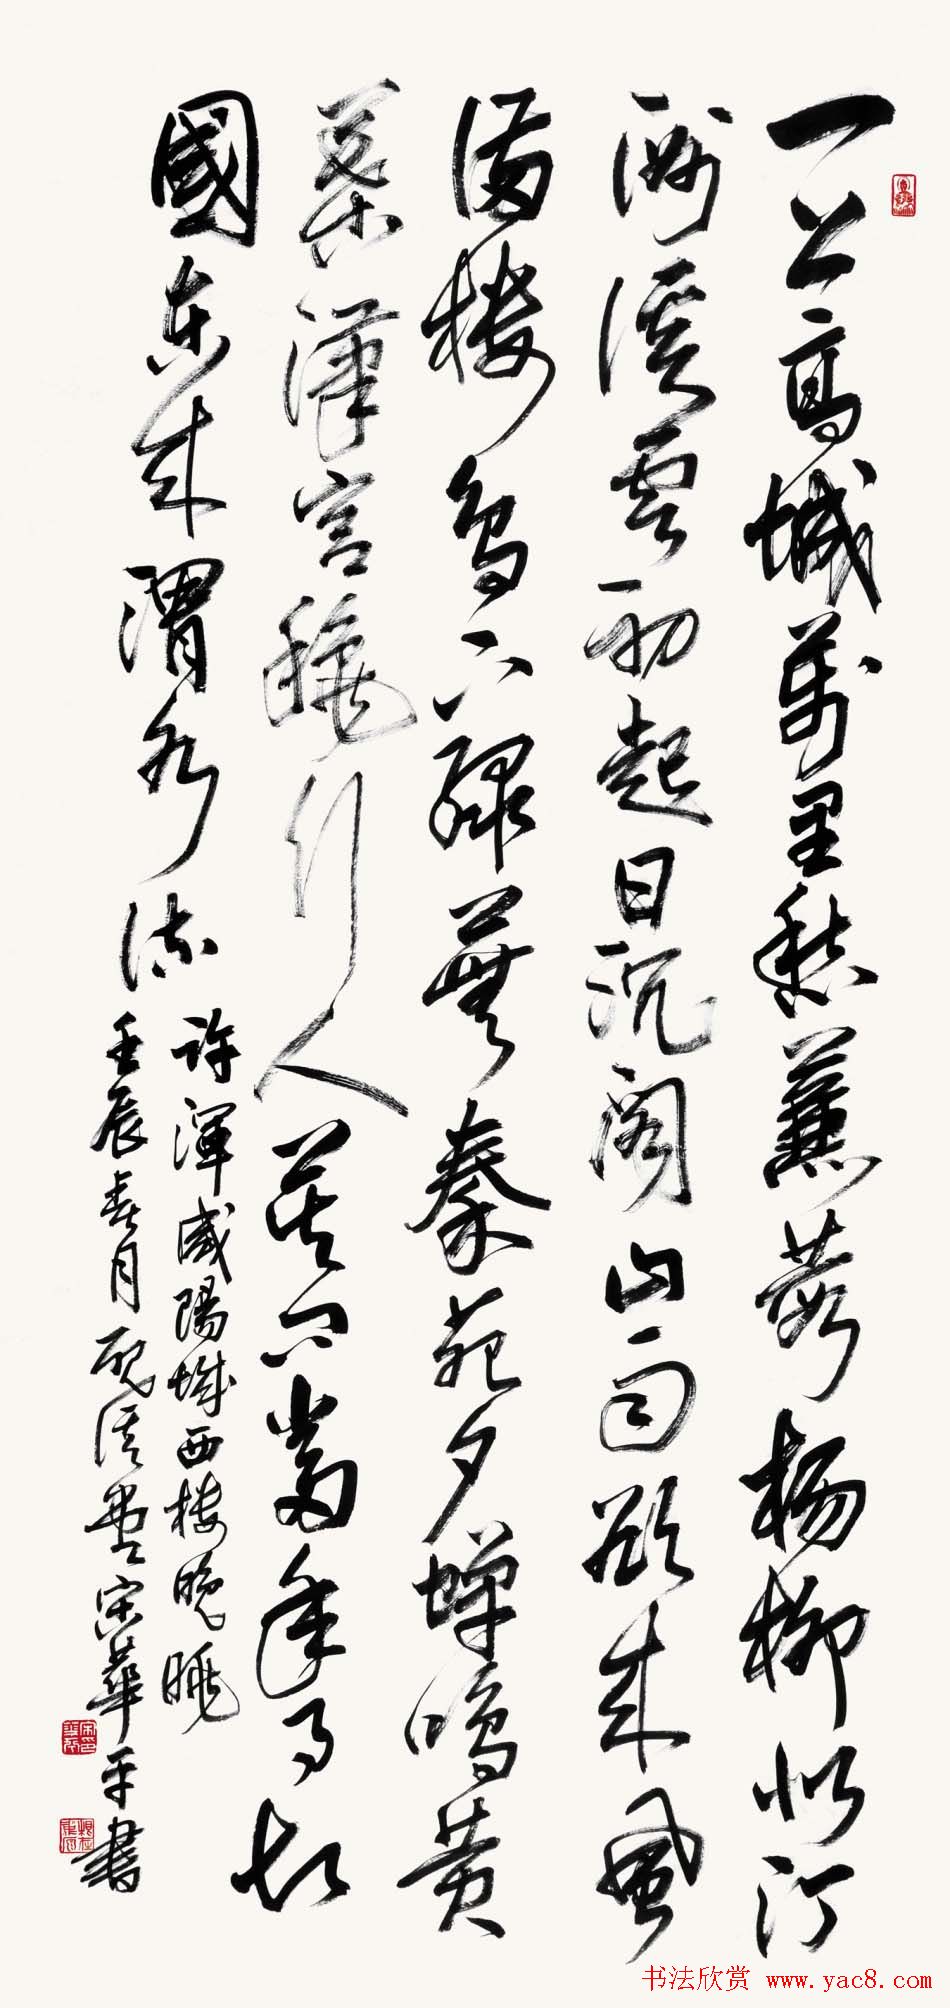 一上高城萬里愁蒹葭楊柳似汀
洲溪雲初起日沉閣山雨欲來風
滿樓鳥下綠蕪秦苑夕蟬鳴黃
葉漢宮秋行人莫問當年事故
國東來渭水流
許渾咸陽城西樓晚眺
壬辰春月硯溪堂宋華平書
书法欣赏 www.yac8.com